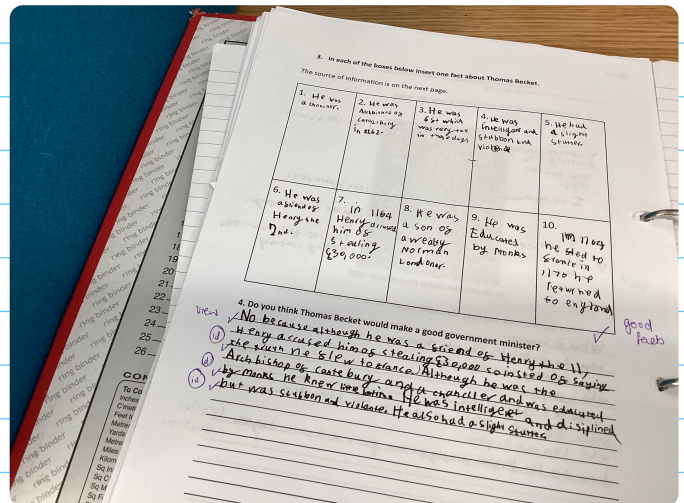 3. In each of the boxes below insert one fact about Thomas Becket.
The source of information is on the next page.
1. He was
a chancler.
2. He was
Archbishop of
cantarbury
in 1162.
3. He was
6st which
was very tall
in those days
4. He was
Intelligent and
stubbon and
5. He had
a slight
stutter
6. He was
a friend of
Henry the
2nd.
7.
in 1164
Henry accused
him of
stealing
£30,000.
8. He was
a son of
a weathy
Norman
Londoner.
9. He was
Educated
by monks
10.
1164
he fled to
france in
1170 he
returned
to england
4. Do you think Thomas Becket would make a good government minister?
view
No because although he was a friend of Henry the II,
Henry accused him of stealing £30,000 coinsted of saying
the truth he flew to france. Although he was the
Archbishop of cantebury and a chancller and was educated
by monks he knew little latin. He was intelligent and disiplined
but was stubbon and violante. He also had a slight stutter
good
ring binder
ring binder
ring binder
ring binder
ring binder
ring binder
ring binder
ring binder
19
20
21
22
23
24
25
26
CON
To Co
Inches
C'metr
Feet t
Metres
Yards
Metre
Miles
Kilom
Sq In
Sq M
Sq F